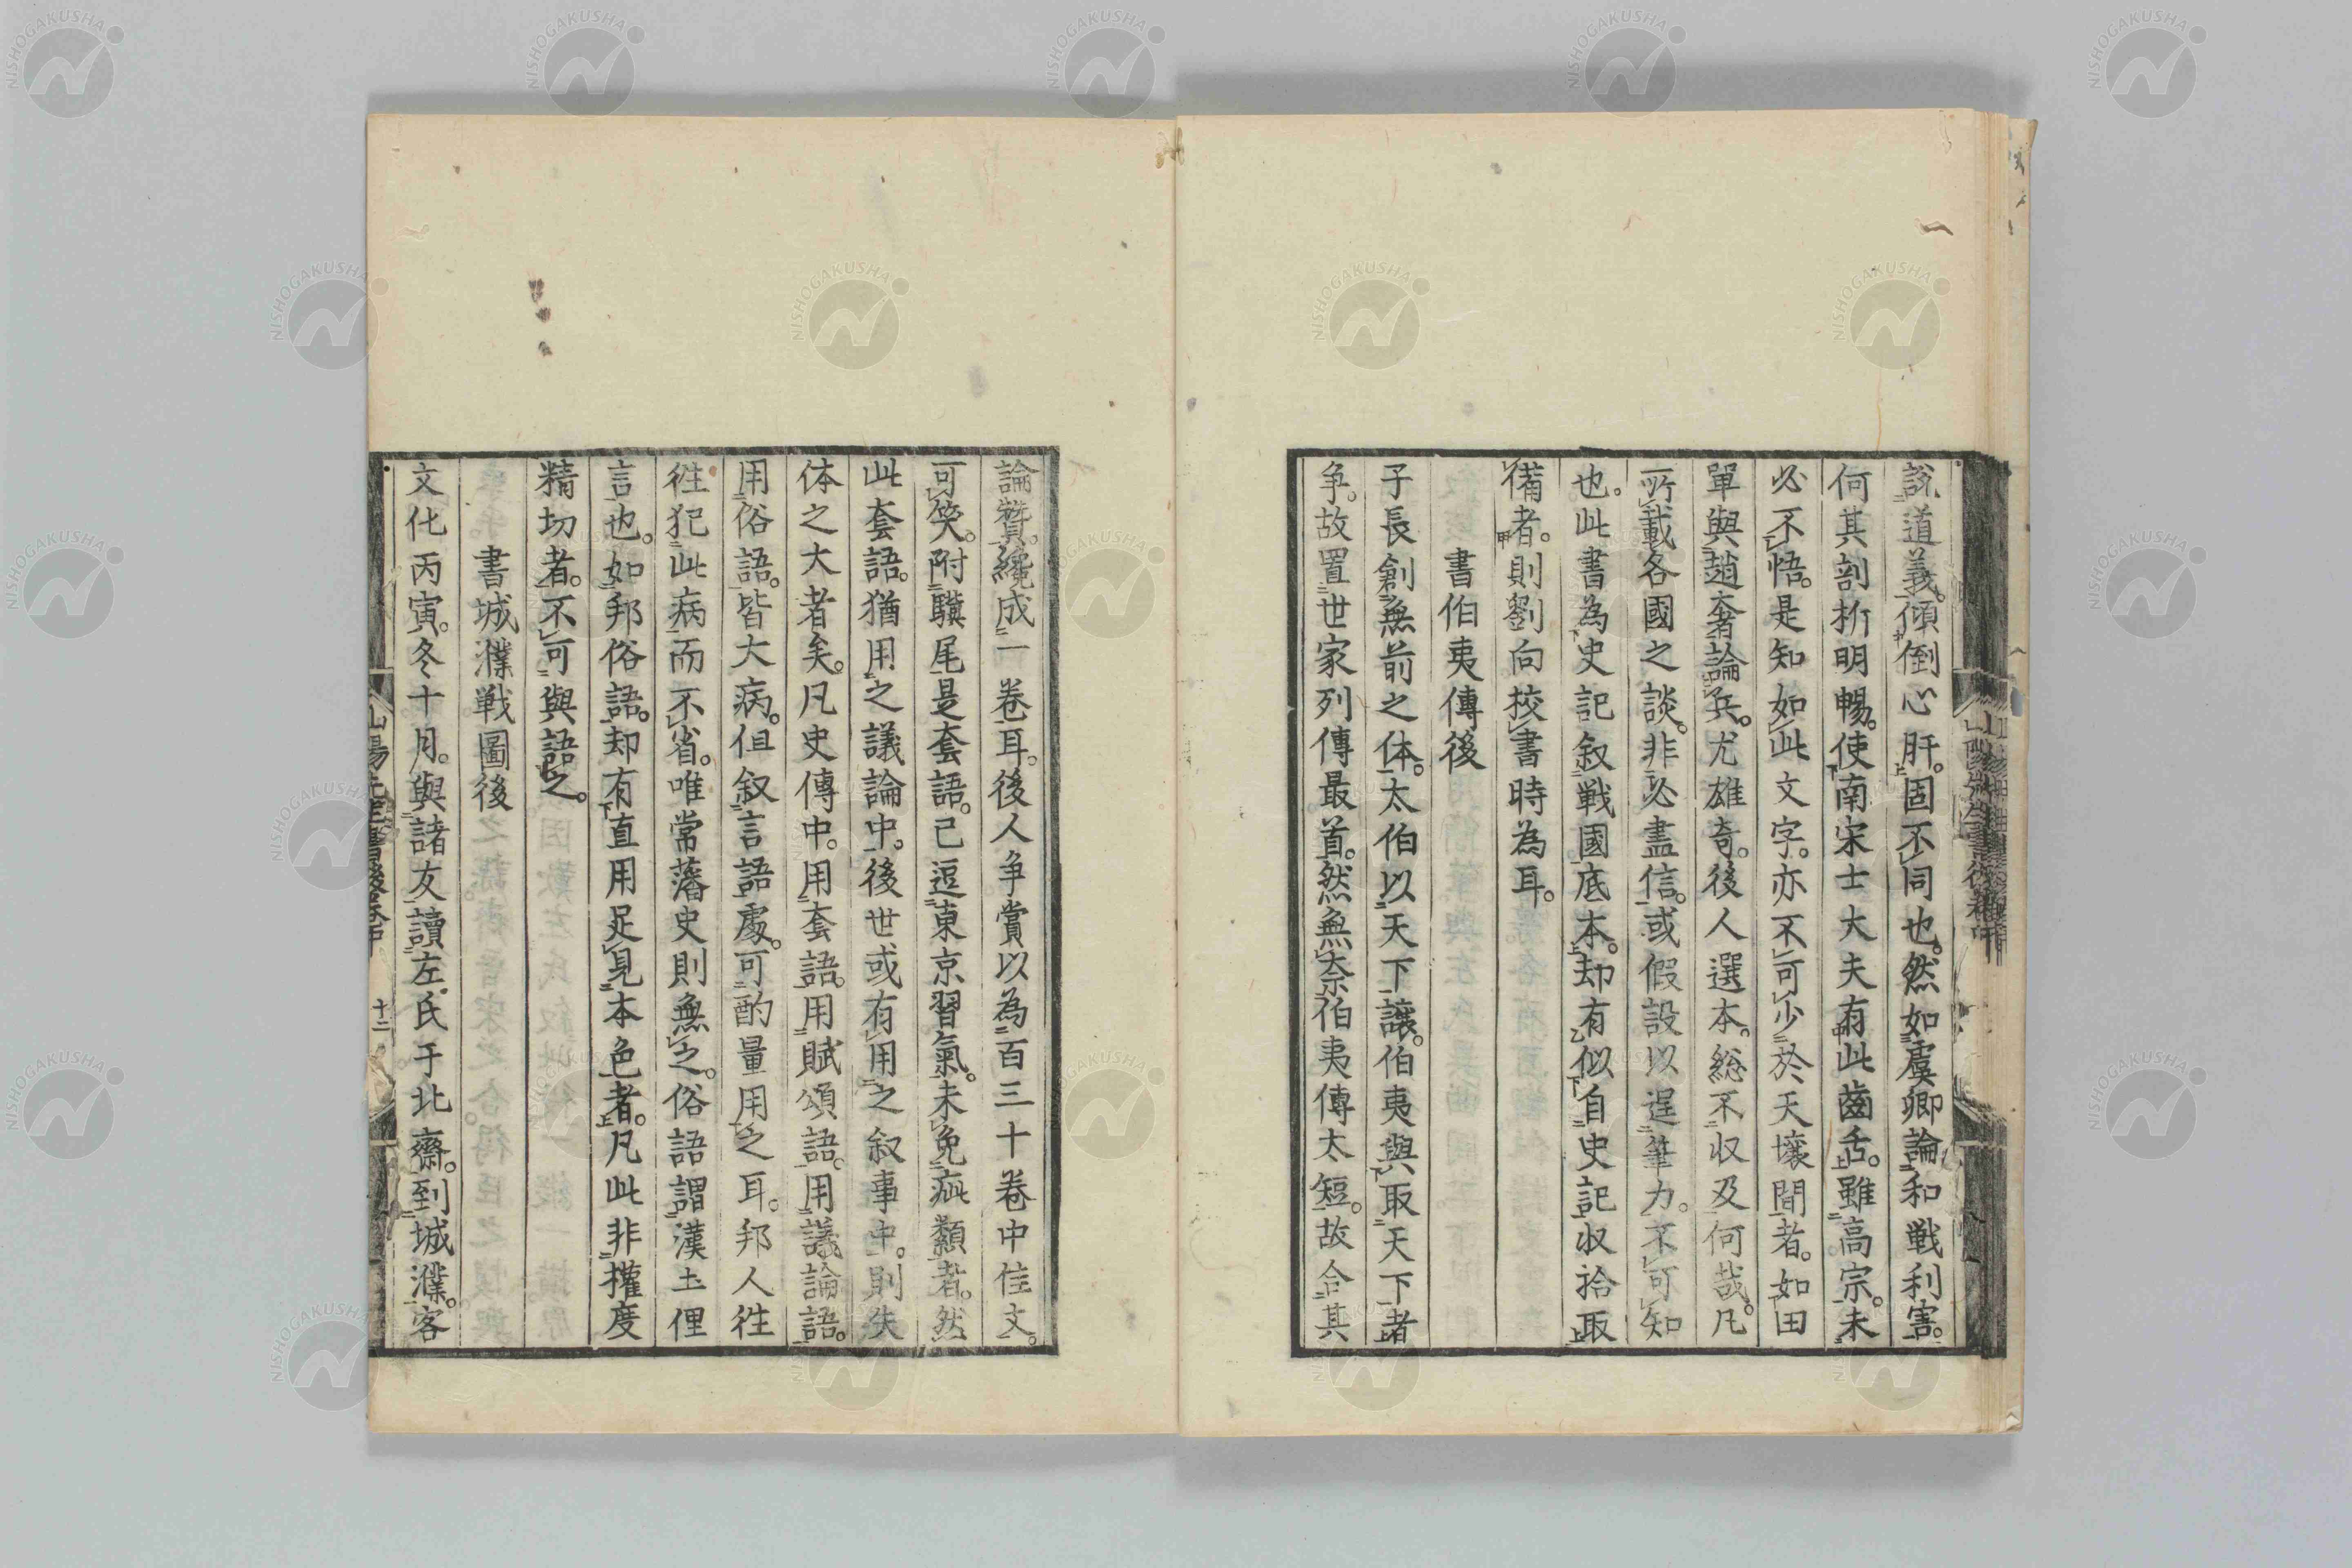 説道義。傾倒心肝。固不同也。然如虞卿論和戦利害。
何其剖析明暢。使南宋士大夫有此齒舌。雖高宗。未
必不悟。是知如此文字。亦不可少於天壌間者。如田
單與趙奢論兵。尤雄奇。後人選本。総不収及何哉。凡
所載各國之談。非必盡信。或假設以逞筆力。不可知
也。此書為史記叙戦國底本。却有似自史記収拾取
備者。則劉向校書時為耳。
書伯夷傳後
子長創無前之体。太伯以天下讓。伯夷與取天下者
争。故置世家列傳最首。然無奈伯夷傳太短。故合其
論賛。纔成一卷耳。後人争賞以為百三十卷中佳文。
可笑。附驥尾是套語。已逗東京習氣。未免疵纇者。然
此套語。猶用之議論中。後世或有用之叙事中。則失
体之大者矣。凡史傳中。用套語。用賦頌語。用議論語。
用俗語。皆大病。但叙言語處。可酌量用之耳。邦人徃
徃犯此病而不省。唯常藩史則無之。俗語謂漢土俚
言也。如邦俗語。却有直用足見本色者。凡此非權度
精切者。不可與語之。
書城濮戦圖後
文化丙寅。冬十月。與諸友讀左氏于北齋。到城濮。客
山陽先生書後卷中
十二
NISHOGAKUSHA